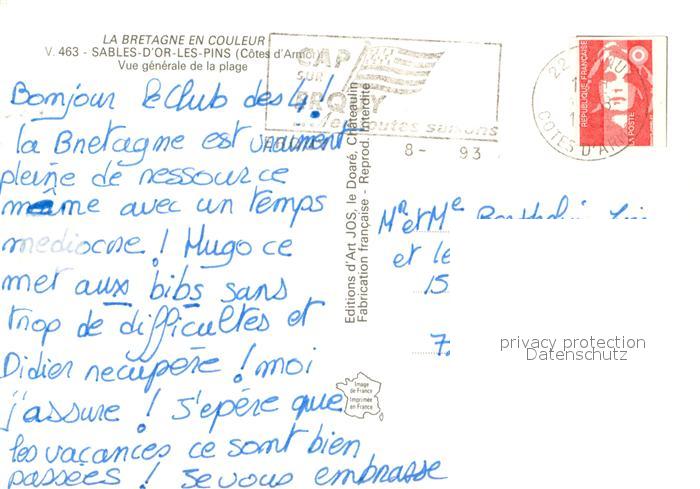 LA BRETAGNE EN COULEUR
V. 463 - SABLES-D'OR-LES-PINS (Côtes d'Armor)
Vue générale de la plage
Bonjour le club des 4 !
la Bretagne est vraiment
pleine de ressource
même avec un temps
mediocre ! Hugo ce
met aux bibs sans
trop de difficultes et
Didier recupère ! moi
j'assure ! J'epère que
les vacances ce sont bien
passées ! Je vous embrasse
CAP
SUR
toutes saisons
8- 93
22
COTES D'AR
REPUBLIQUE FRANÇAISE
LA POSTE
Editions d'Art JOS, le Doaré, Châteaulin
Fabrication française - Reprod. Interdite
Mr et Me
et le
15
7.
Image
de France
Imprimée
en France
privacy protection
Datenschutz